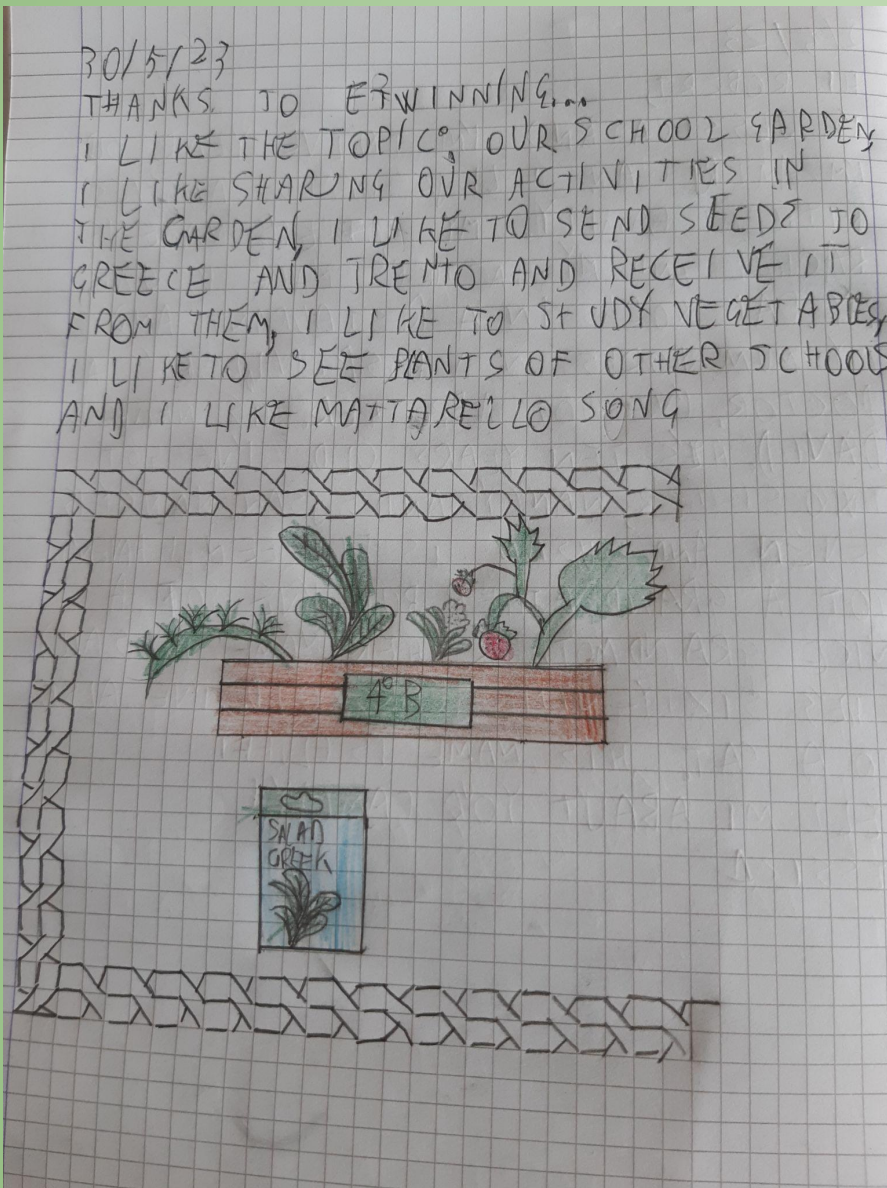 30/5/23
THANKS TO ETWINNING...
I LIKE THE TOPIC: OUR SCHOOL GARDEN,
I LIKE SHARING OUR ACTIVITIES IN
THE GARDEN, I LIKE TO SEND SEEDS TO
GREECE AND TRENTO AND RECEIVE IT
FROM THEM, I LIKE TO STUDY VEGETABLES,
I LIKE TO SEE PLANTS OF OTHER SCHOOLS
AND I LIKE MATTARELLO SONG
4° B
SALAD
GREEK